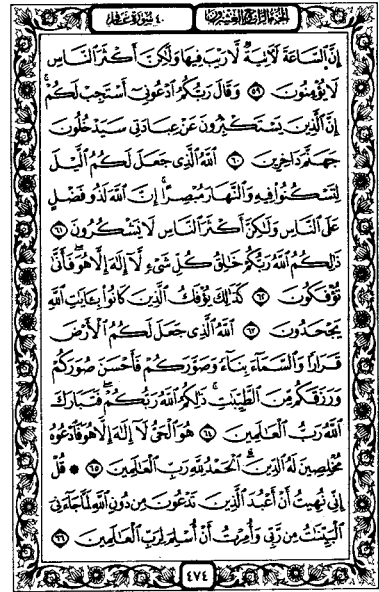 الجزء الرابع والعشرون ٤٠ سورة غافر
إِنَّ ٱلسَّاعَةَ لَـَٔاتِيَةٌ لَّا رَيْبَ فِيهَا وَلَـٰكِنَّ أَكْثَرَ ٱلنَّاسِ
لَا يُؤْمِنُونَ ۝٥٩ وَقَالَ رَبُّكُمُ ٱدْعُونِىٓ أَسْتَجِبْ لَكُمْ ۚ
إِنَّ ٱلَّذِينَ يَسْتَكْبِرُونَ عَنْ عِبَادَتِى سَيَدْخُلُونَ
جَهَنَّمَ دَاخِرِينَ ۝٦٠ ٱللَّهُ ٱلَّذِى جَعَلَ لَكُمُ ٱلَّيْلَ
لِتَسْكُنُوا۟ فِيهِ وَٱلنَّهَارَ مُبْصِرًا ۚ إِنَّ ٱللَّهَ لَذُو فَضْلٍ
عَلَى ٱلنَّاسِ وَلَـٰكِنَّ أَكْثَرَ ٱلنَّاسِ لَا يَشْكُرُونَ ۝٦١
ذَٰلِكُمُ ٱللَّهُ رَبُّكُمْ خَـٰلِقُ كُلِّ شَىْءٍ لَّآ إِلَـٰهَ إِلَّا هُوَ ۖ فَأَنَّىٰ
تُؤْفَكُونَ ۝٦٢ كَذَٰلِكَ يُؤْفَكُ ٱلَّذِينَ كَانُوا۟ بِـَٔايَـٰتِ ٱللَّهِ
يَجْحَدُونَ ۝٦٣ ٱللَّهُ ٱلَّذِى جَعَلَ لَكُمُ ٱلْأَرْضَ
قَرَارًا وَٱلسَّمَآءَ بِنَآءً وَصَوَّرَكُمْ فَأَحْسَنَ صُوَرَكُمْ
وَرَزَقَكُم مِّنَ ٱلطَّيِّبَـٰتِ ۚ ذَٰلِكُمُ ٱللَّهُ رَبُّكُمْ ۖ فَتَبَارَكَ
ٱللَّهُ رَبُّ ٱلْعَـٰلَمِينَ ۝٦٤ هُوَ ٱلْحَىُّ لَآ إِلَـٰهَ إِلَّا هُوَ فَٱدْعُوهُ
مُخْلِصِينَ لَهُ ٱلدِّينَ ۗ ٱلْحَمْدُ لِلَّهِ رَبِّ ٱلْعَـٰلَمِينَ ۝٦٥ ۞ قُلْ
إِنِّى نُهِيتُ أَنْ أَعْبُدَ ٱلَّذِينَ تَدْعُونَ مِن دُونِ ٱللَّهِ لَمَّا جَآءَنِىَ
ٱلْبَيِّنَـٰتُ مِن رَّبِّى وَأُمِرْتُ أَنْ أُسْلِمَ لِرَبِّ ٱلْعَـٰلَمِينَ ۝٦٦
٤٧٤